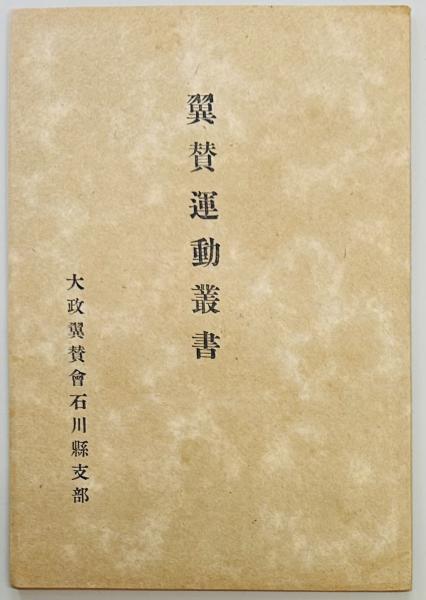 翼賛運動叢書
大政翼賛會石川縣支部